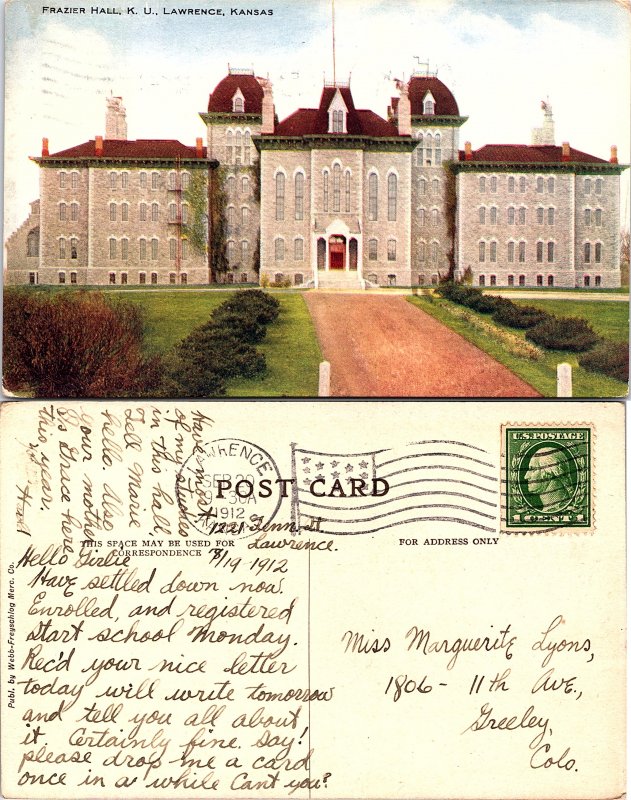 FRAZIER HALL, K. U., LAWRENCE, KANSAS
Have most
of my studies
in this hall.
Tell Marie
hello. Also
your mother.
Is Grace here
this year.
Hazel
LAWRENCE
SEP 20
1912
U.S. POSTAGE
POST CARD
1221 Tenn. st
THIS SPACE MAY BE USED FOR
CORRESPONDENCE
Lawrence.
FOR ADDRESS ONLY
Hello Girlie 9/19-1912
Have settled down now.
Enrolled, and registered
start school Monday.
Rec'd your nice letter
today will write tomorrow
and tell you all about
it. Certainly fine. Say!
please drop me a card
once in a while Cant you?
Miss Marguerite Lyons,
1806- 11th Ave.,
Greeley,
Colo.
Publ. by Webb-Freyschlag Merc. Co.